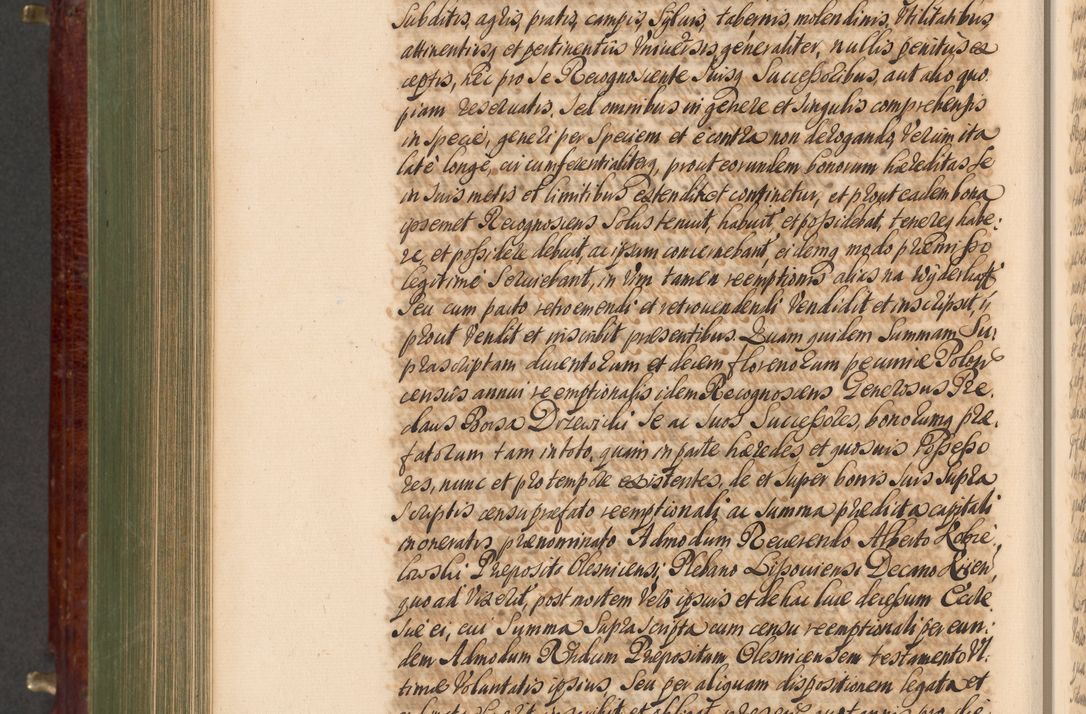 Subditis, agris, pratis, campis, Syluis, tabernis, molendinis, Vtilitatibus
attinentiis, et pertinentiis Vniuersis, generaliter, nullis penitus ex
ceptis, nec pro se Recognoscente suisq Successoribus, aut alio quo
piam reseruatis. Sed omnibus in genere et singulis comprehensis
in specie, generi per speciem et econtra non derogando, Verum ita
late longe, circumferentialiterq, prout eorundem bonorum haereditas se
in suis metis et limitibus extendit et continetur, et prout eadem bona
ipsemet Recognoscens Solus tenuit, habuit, et possidebat, tenereq habe:
re, et possidere debuit, ac ipsum concernebant, eidemq modo praemisso
legitime Seruiebant, in Vim tamen reemptionis alias na wyderkaff
Seu cum pacto retroemendi et retrouendendi Vendidit et inscripsit,
prout Vendit et inscribit praesentibus. Quam quidem Summam Su,
prascriptam ducentorum et decem florenorum pecuniae Polon
census annui reemptionalis idem Recognoscens Generosus Ste.
claus Borsa Drzewicki se ac suos Successores, bonorumq prae,
fatorum tam in toto, quam in parte haeredes et quosuis Possesso
res, nunc et pro tempore existentes, de et super bonis suis supra
scriptis censu praefato reemptionali ac summa praedicta capitali
inoneratis praenominato Admodum Reuerendo Alberto Kobie,
lowski Praeposito Olesnicensi, Plebano Lissouiensi Decano
quo ad Vixerit, post mortem Vero ipsius et de hac luce decessum Eccle
siae ei, cui Summa Suprascripta cum censu reemptionali per eun:
dem Admodum Rndum Praepositum Olesnicensem testamento Vl.
timae Voluntatis ipsius, Seu per aliquam dispositionem legata et